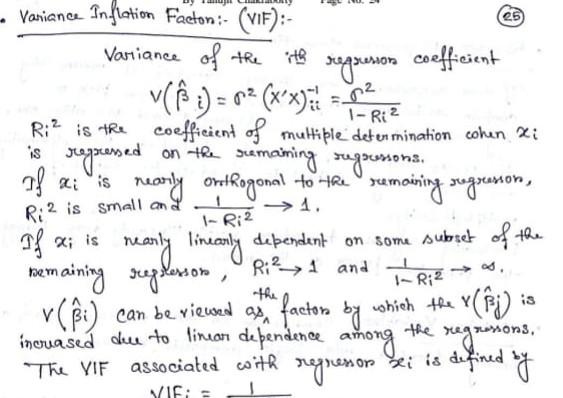 By Tanujit Chakraborty Page No. 24
• Variance Inflation Factor:- (VIF):- 25
Variance of the ith regression coefficient
V(β̂ i) = σ² (X'X)⁻¹ii = σ² / 1 - Ri²
Ri² is the coefficient of multiple determination when xi
is regressed on the remaining regressors.
If xi is nearly orthogonal to the remaining regressor,
Ri² is small and 1 / 1 - Ri² → 1.
If xi is nearly linearly dependent on some subset of the
remaining regressor, Ri² → 1 and 1 / 1 - Ri² → ∞.
V(β̂i) can be viewed as the factor by which the V(β̂j) is
increased due to linear dependence among the regressors.
The VIF associated with regressor xi is defined by
VIFi = 1